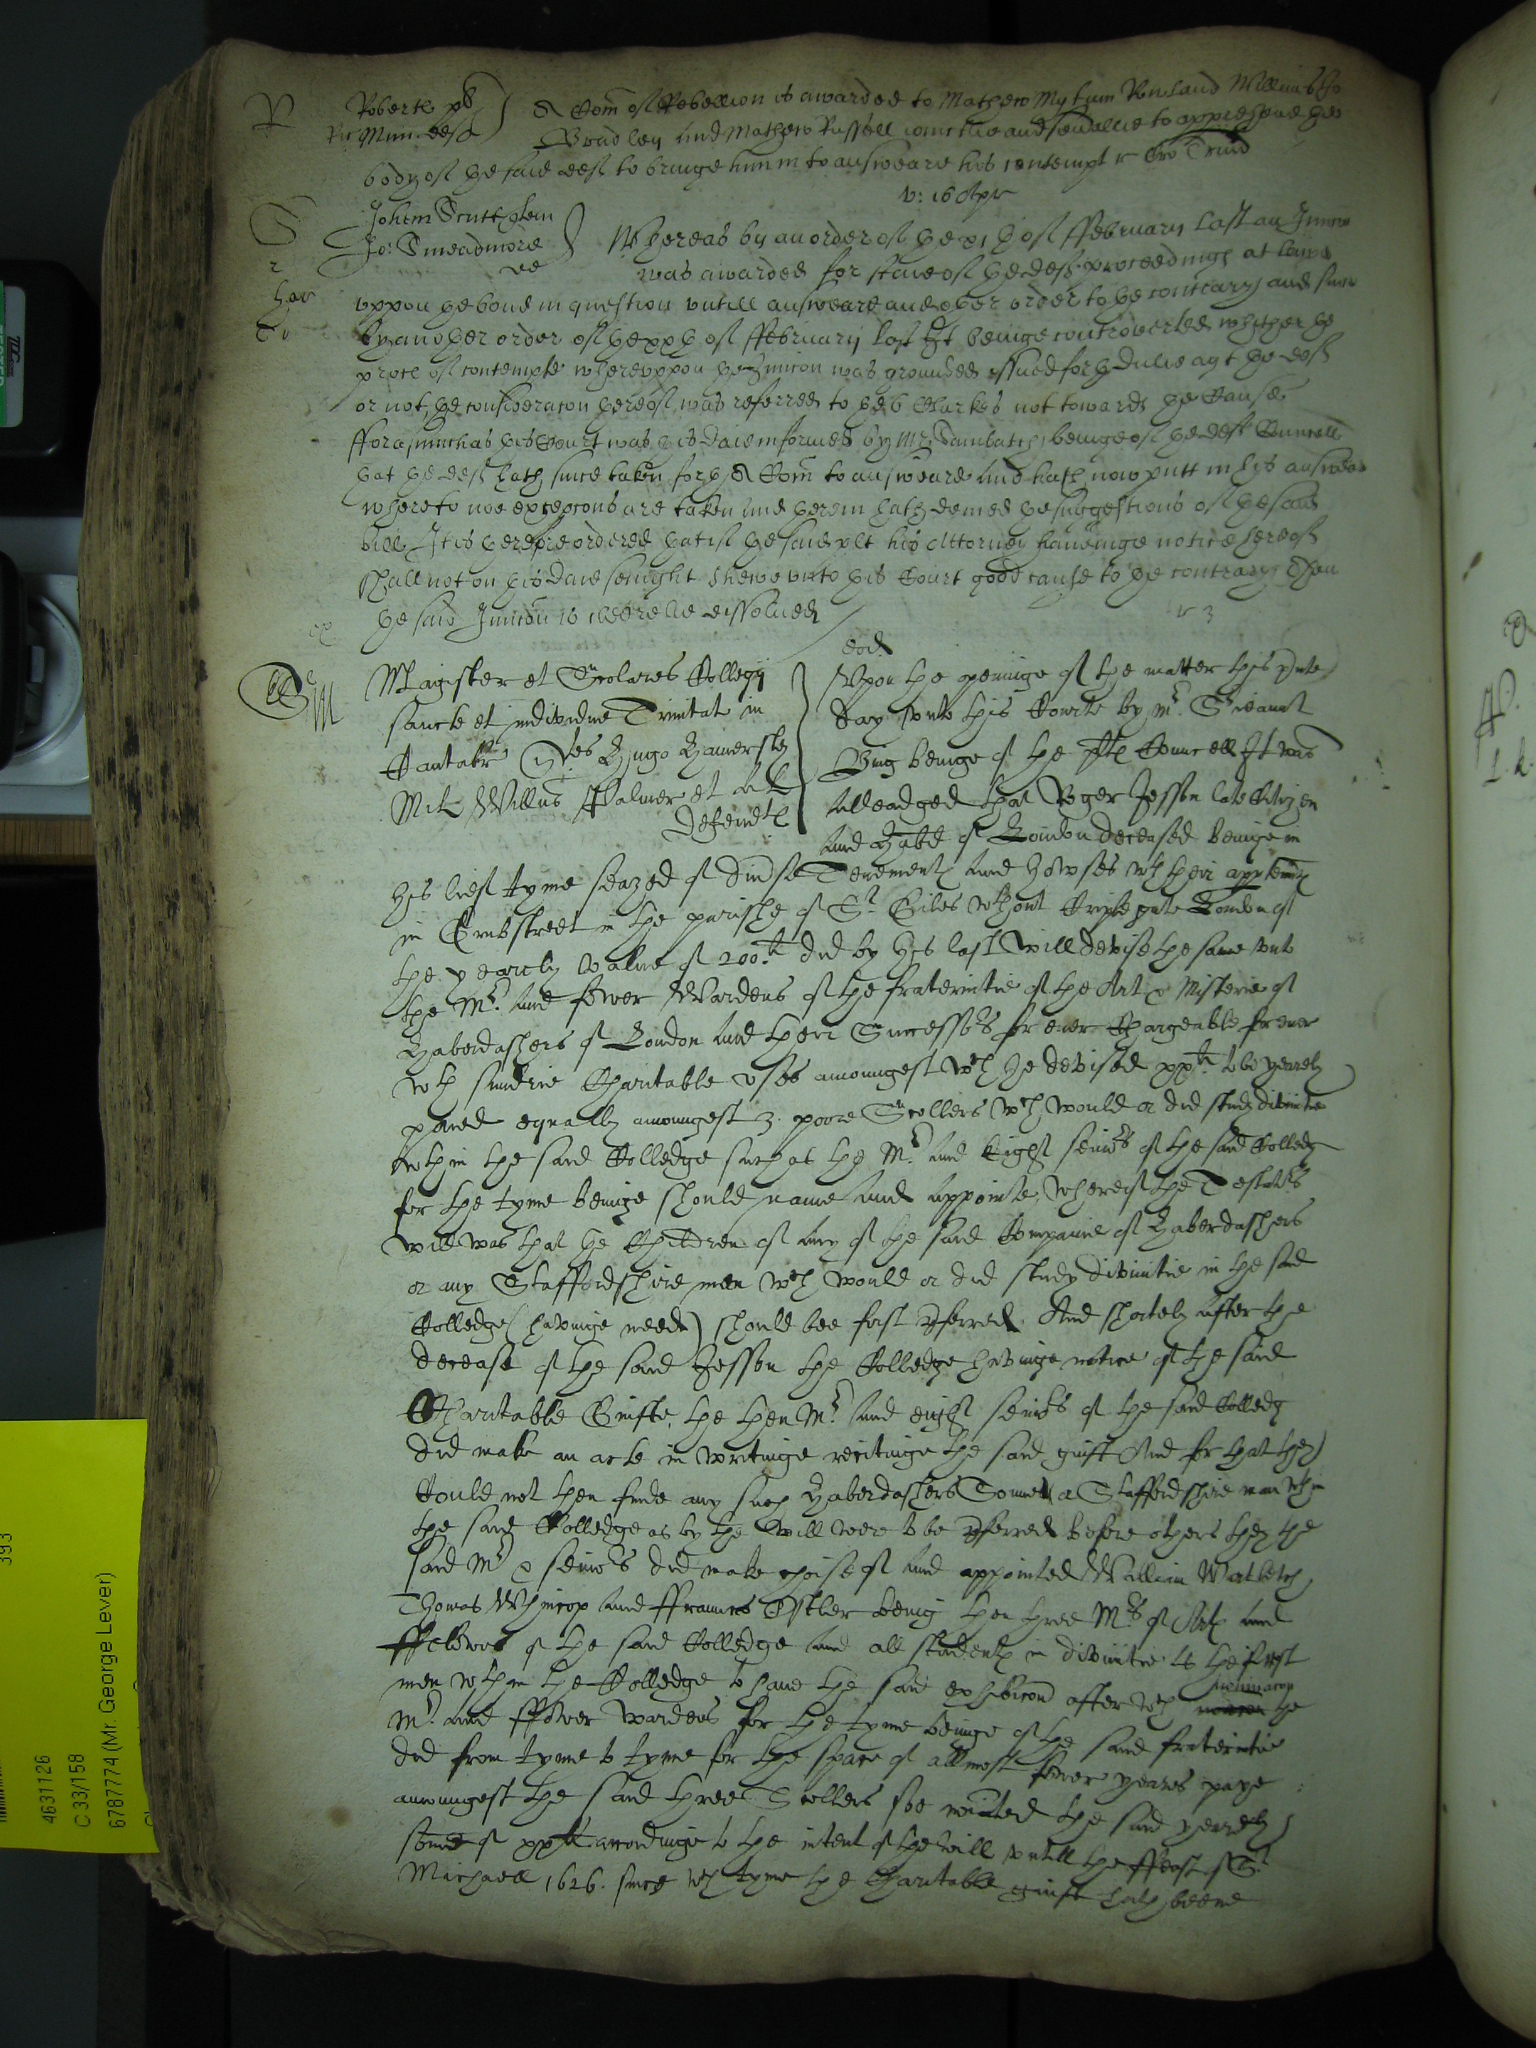 R
Roberte plt
Ric Munn deft
A Com of Rebellion is awarded to Mathew Mytum Rowland Williams Jo
Bradley and Mathew Russell iointlie and seuallie to apprehend the
body of the said deft to bringe him in to answeare his contempt r
v: 16 Apr
Johem Scutt plem
Jo: Smeadmore
de
Whereas by an order of the xj th of ffebruary last an Iniuncc
was awarded for staie of the deft proceedings at lawe
vppon the bond in question vntill answeare and other order to the contrary and since
by another order of the xxth of ffebruary last It beinge controverted whether the
proces of contempte wherevppon the Iniuncon was grounded issued forth dulie agt the deft
or not the consideracon thereof was referred to the 6 Clarkes not towards the Cause
fforasmuch as this Court was this daie informed by Mr Sambatch beinge of the deft Councell
that the deft hath since taken forth A Com to answeare and hath now putt in his answeare
whereto noe excepcons are taken and therein hath denied the suggestions of the said
bill It is therefore ordered that if the said plt his Attorney haueinge notice hereof
shall not on this daie senight shewe vnto this Court good cause to the contrary Then
the said Iniuncon is cleerelie dissolued
Magister et Scolares Collegij
sancte et individue Trinitat in
Cantabr Ques Hugo Hamersley
Mil Willus Palmer et al
Defendtes
eod
Vpon the openinge of the matter this pnte
day vnto this Courte by Mr Srieaunt
Bing beinge of the plts Councell It was
Alleadged that Roger Jesson late Citizen
and Habd of London deceased beinge in
his lief tyme seazed of diuse Tenements and howses wth their apptenncs
in Grubstreet in the parishe of St Giles wthout Criplegate London of
the yearely value of 200li did by his last will devise the same vnto
the Mr and fower Wardens of the fraternitie of the Art & Misterie of
Haberdashers of London and their Successors for euer Chargeable for euer
wth sundrie Charitable vses amoungest wch he devised xxli to be yearely
payed equally amoungest 3 poore Scollers wch would or did study divinitie
wthin the said Colledge such as the Mr and Eight seniors of the said Colledg
for the tyme beinge should name and appointe, whereof the Testators
will was that the Children of any of the said Companie of Haberdashers
or any Staffordshire men wch would or did study divinitie in the said
Colledge (havinge neede) should bee first pferred And shortely after the
decease of the said Jesson the Colledge havinge notice of the said
Charitable Guifte, the then Mr and eight seniors of the said Colledg
did make an acte in writinge recitinge the said guift And for that they
Could not then finde any such Haberdashers Sonnes or a Staffordshire man wthin
the said Colledge as by the will were to be pferred before others they the
said Mr & seniors did make choise of and appointed William
Thomas Whincop and ffraunces beinge then three Mrs of Arts and
ffellowes of the said Colledge and all students in divinitie to the first
men wthin the Colledge to haue the said exhibicon after wch nominacon the
Mr and ffower wardens for the tyme beinge of the said fraternitie
did from tyme to tyme for the space of allmost fower yeares paye
amoungest the said three Scollers soe the said yearely
some of xxli accordinge to the intent of the will vntill the ffeast of St
Michaell 1626. since wch tyme the Charitable guift hath beene
393
4631126
C 33/158
6787774 (Mr. George Lever)